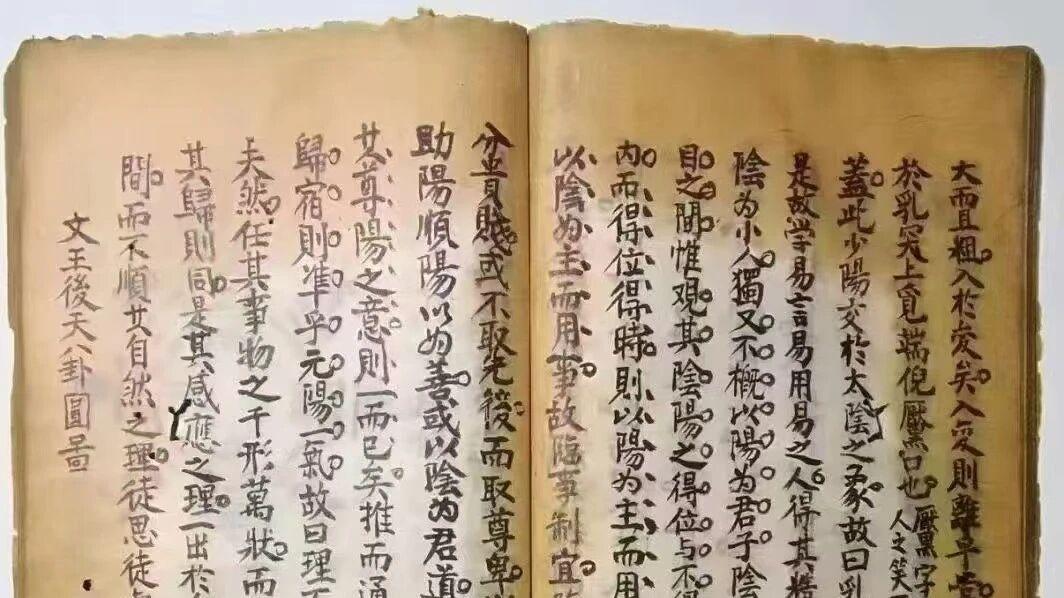 大而且粗入於爻矣入爻則離卑
於乳突上覓端倪黶口也黶黑字
人之笑
蓋此少陽交於太陰之象故曰乳
是故學易言易用易之人得其精
陰為小人獨又不概以陽為君子陰
目之間惟观其陰陽之得位与不得
内而得位得時則以陽為主而用
以陰為主而用事故臨事制宜
分貴賤或不取先後而取尊卑
助陽順陽以為善或以陰為君道
其尊陽之意則一而已矣推而通
歸宿則準乎元陽一氣故曰理
夫然任其事物之千形萬狀而
其歸則同是其感應之理一出於
間而不順其自然之理徒思徒
文王後天八卦圓啚